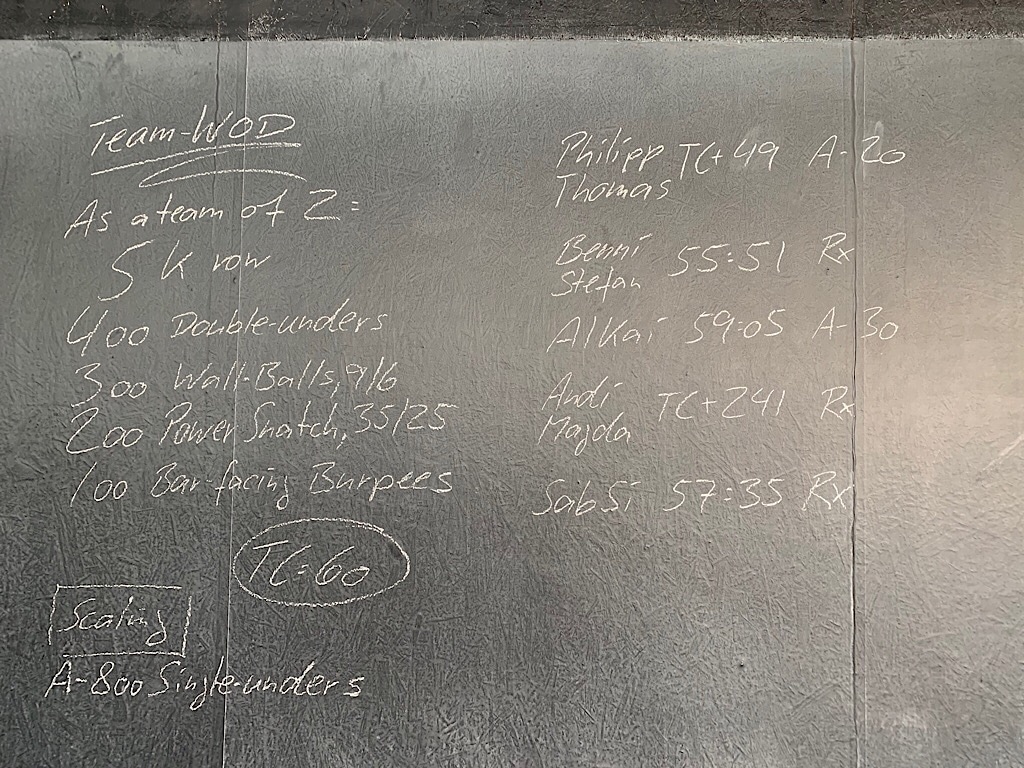 Team-WOD
As a team of 2:
5 k row
400 Double-unders
300 Wall-Balls, 9/6
200 Power Snatch, 35/25
100 Bar-facing Burpees
TC=60
Scaling
A-800 Single-unders
Philipp TC+49 A-20
Thomas
Benni 55:51 Rx
Stefan
Alkai 59:05 A-30
Andi TC+241 Rx
Magda
SabSi 57:35 Rx